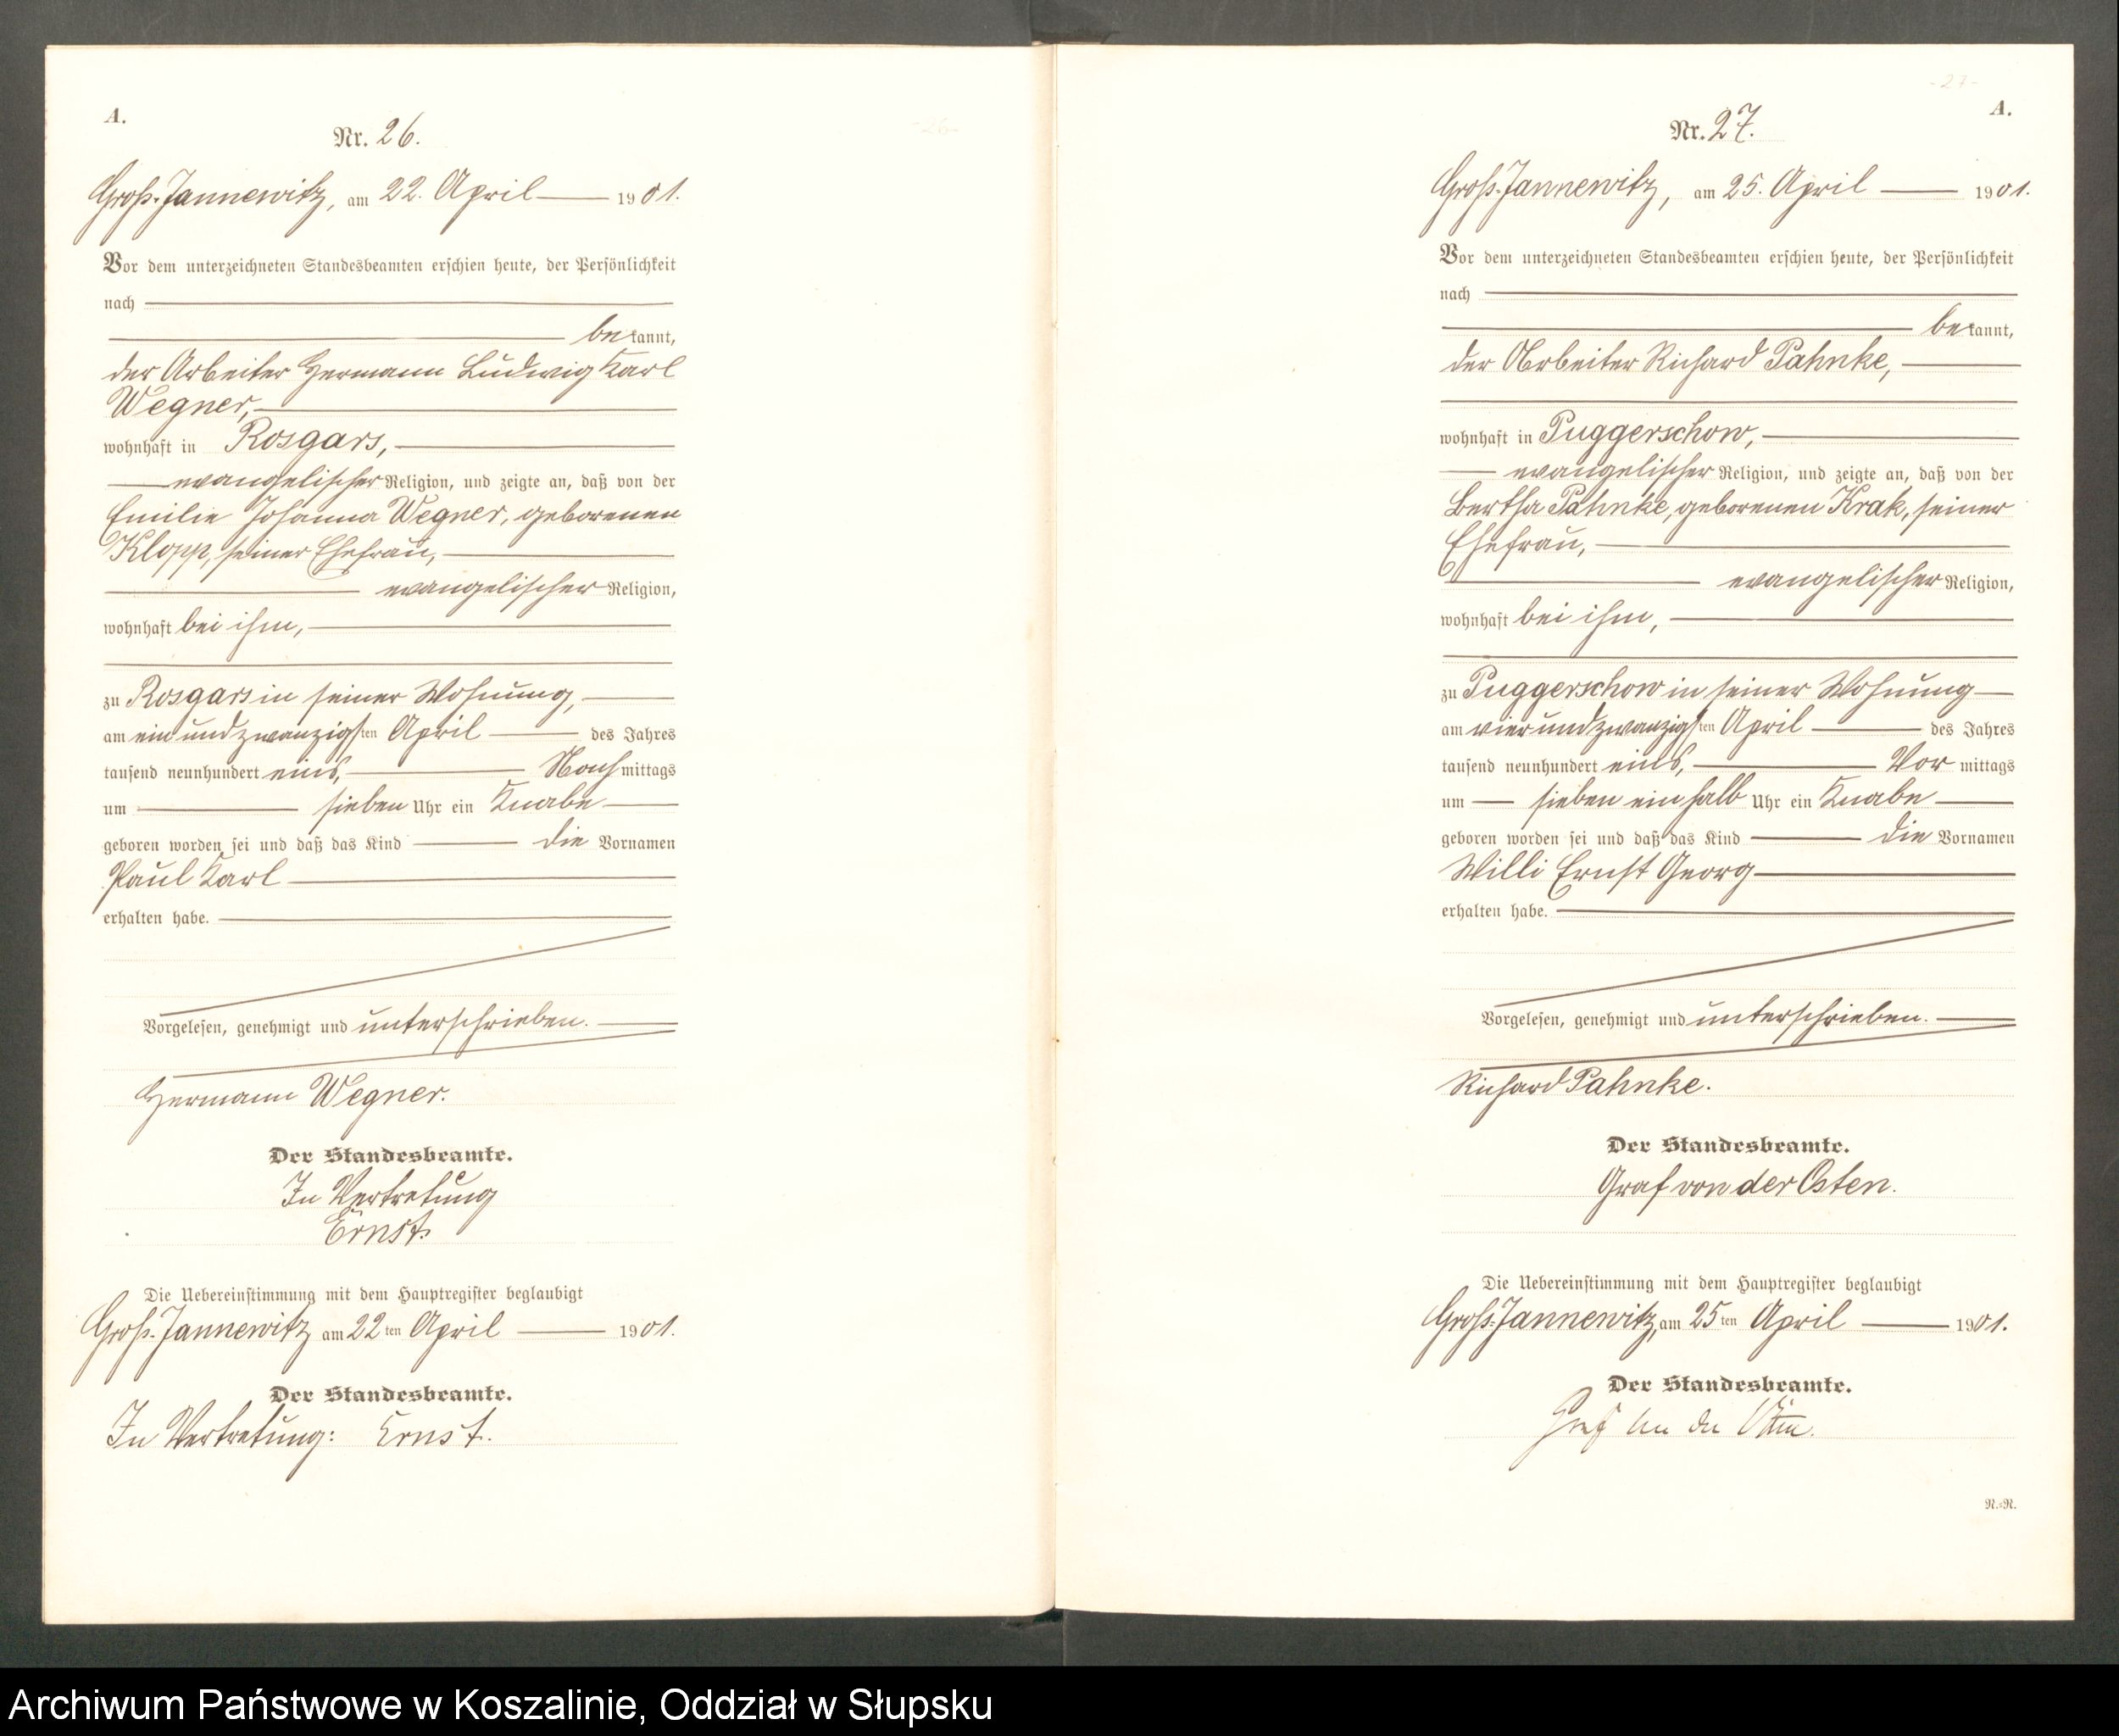 A.
Nr. 26.
Groß-Jannewitz, am 22. April 1901.
Vor dem unterzeichneten Standesbeamten erschien heute, der Persönlichkeit
nach
bekannt,
der Arbeiter Hermann Ludwig Karl
Wegner,
wohnhaft in Rosgars,
evangelischer Religion, und zeigte an, daß von der
Emilie Johanna Wegner, geborenen
Klopp, seiner Ehefrau,
evangelischer Religion,
wohnhaft bei ihm,
zu Rosgars in seiner Wohnung,
am ein und zwanzigsten April des Jahres
tausend neunhundert eins, Nachmittags
um sieben Uhr ein Knabe
geboren worden sei und daß das Kind die Vornamen
Paul Karl
erhalten habe.
Vorgelesen, genehmigt und unterschrieben.
Hermann Wegner.
Der Standesbeamte.
In Vertretung
Ernst
Die Uebereinstimmung mit dem Hauptregister beglaubigt
Groß-Jannewitz am 22ten April 1901.
Der Standesbeamte.
In Vertretung: Ernst.
-26-
-27-
A.
Nr. 27.
Groß-Jannewitz, am 25. April 1901.
Vor dem unterzeichneten Standesbeamten erschien heute, der Persönlichkeit
nach
bekannt,
der Arbeiter Richard Pahnke,
wohnhaft in Puggerschow,
evangelischer Religion, und zeigte an, daß von der
Bertha Pahnke, geborenen Krak, seiner
Ehefrau,
evangelischer Religion,
wohnhaft bei ihm,
zu Puggerschow in seiner Wohnung
am vier und zwanzigsten April des Jahres
tausend neunhundert eins, Vormittags
um sieben ein halb Uhr ein Knabe
geboren worden sei und daß das Kind die Vornamen
Willi Ernst Georg
erhalten habe.
Vorgelesen, genehmigt und unterschrieben.
Richard Pahnke.
Der Standesbeamte.
Graf von der Osten.
Die Uebereinstimmung mit dem Hauptregister beglaubigt
Groß-Jannewitz, am 25ten April 1901.
Der Standesbeamte.
Graf von der Osten.
N.=N.
Archiwum Państwowe w Koszalinie, Oddział w Słupsku